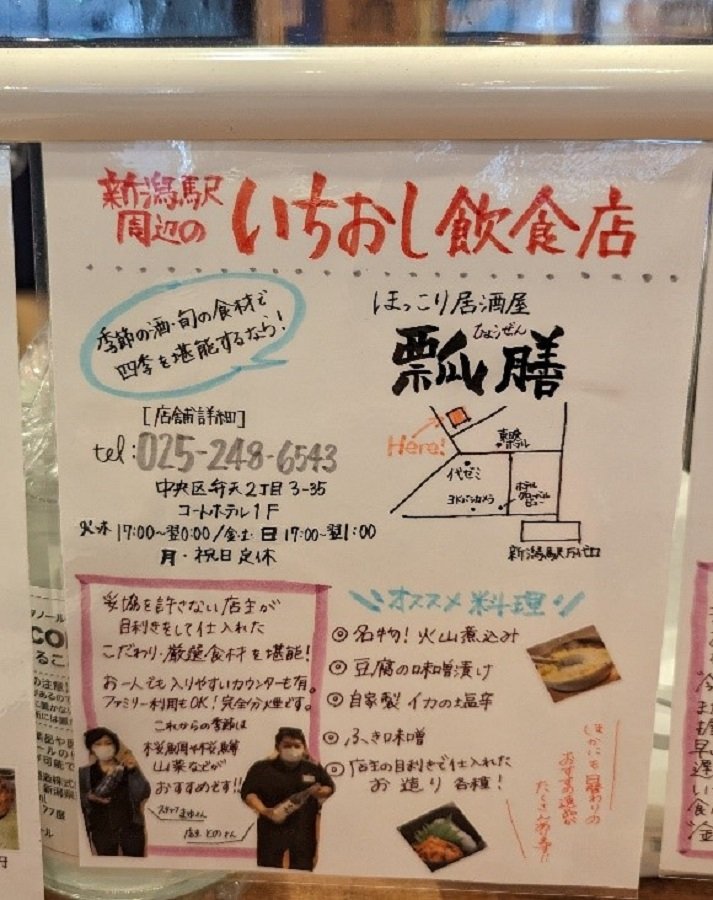 新潟駅
周辺の
いちおし飲食店
季節の酒・旬の食材で
四季を堪能するなら!
ほっこり居酒屋
ひょうぜん
瓢膳
[店舗詳細]
tel:025-248-6543
中央区弁天2丁目3-35
コートホテル1F
火~木 17:00~翌0:00/金・土・日 17:00~翌1:00
月・祝日定休
Here!
東映
ホテル
代ゼミ
ヨドバシカメラ
ホテル
グローバル
ビュー
新潟駅万代口
妥協を許さない店主が
目利きをして仕入れた
こだわり・厳選食材を堪能!
お一人でも入りやすいカウンターも有。
ファミリー利用もOK!完全分煙です。
これからの季節は
山菜などが
おすすめです!!
スタッフ まゆさん
店主 とのさん
オススメ料理
◎名物!火山煮込み
◎豆腐の味噌漬け
◎自家製イカの塩辛
◎ふき味噌
◎店主の目利きで仕入れた
お造り各種!
ほかにも日替わりの
おすすめ逸品が
たくさん有ます!!